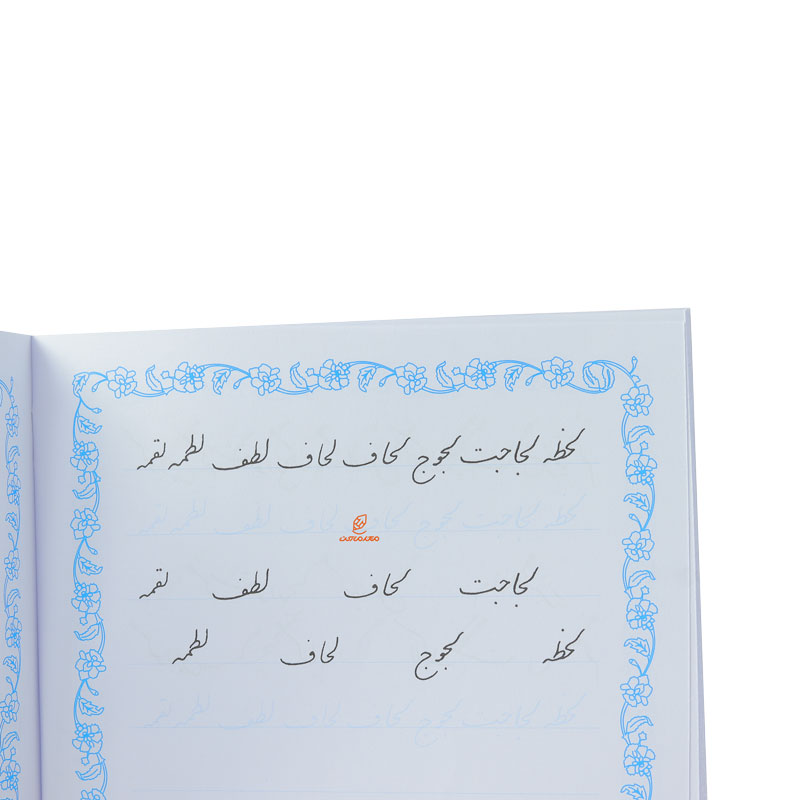 لحظه لجاجت لجوج لحاف لحاف لطف لطمه لقمه
لحظه لجاجت لجوج لحاف لحاف لطف لطمه لقمه
لجاجت لحاف لطف لقمه
لحظه لجوج لحاف لطمه
لحظه لجاجت لجوج لحاف لحاف لطف لطمه لقمه